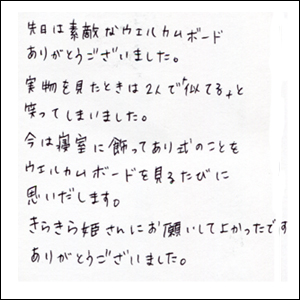 先日は素敵なウェルカムボード
ありがとうございました。
実物を見たときは2人で「似てる」と
笑ってしまいました。
今は寝室に飾ってあり式のことを
ウェルカムボードを見るたびに
思いだします。
きらきら姫さんにお願いしてよかったです
ありがとうございました。